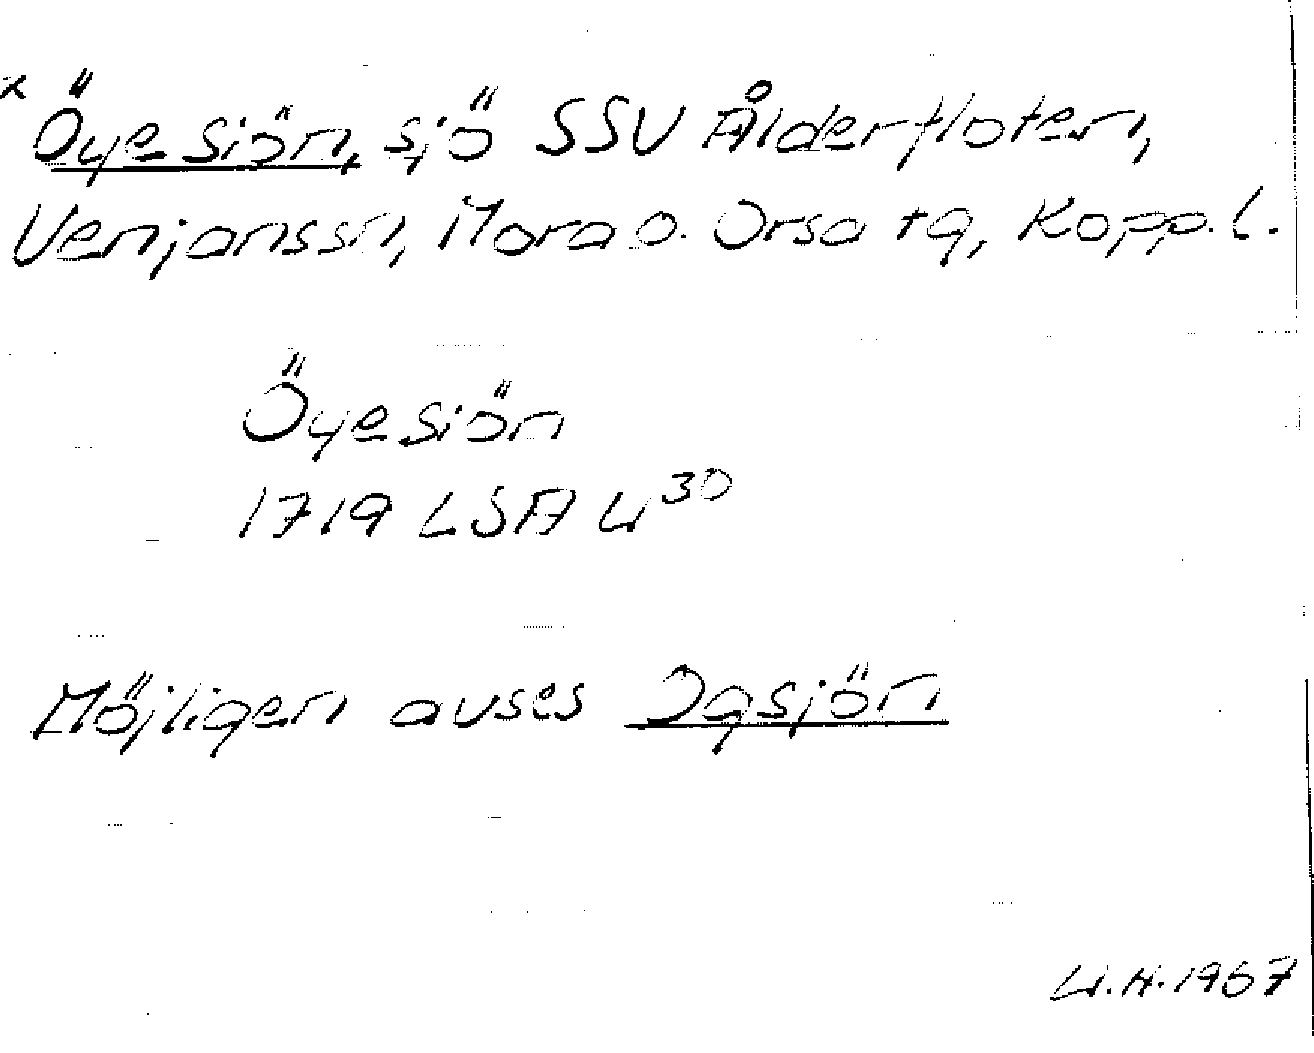 x Öye Siön, sjö SSV Ålderfloten,
Venjanssn, Mora o. Orsa tg, Kopp. l.
Öyesiön
1719 LSA W30
Möjligen avses Ogsjön
W.H. 1967